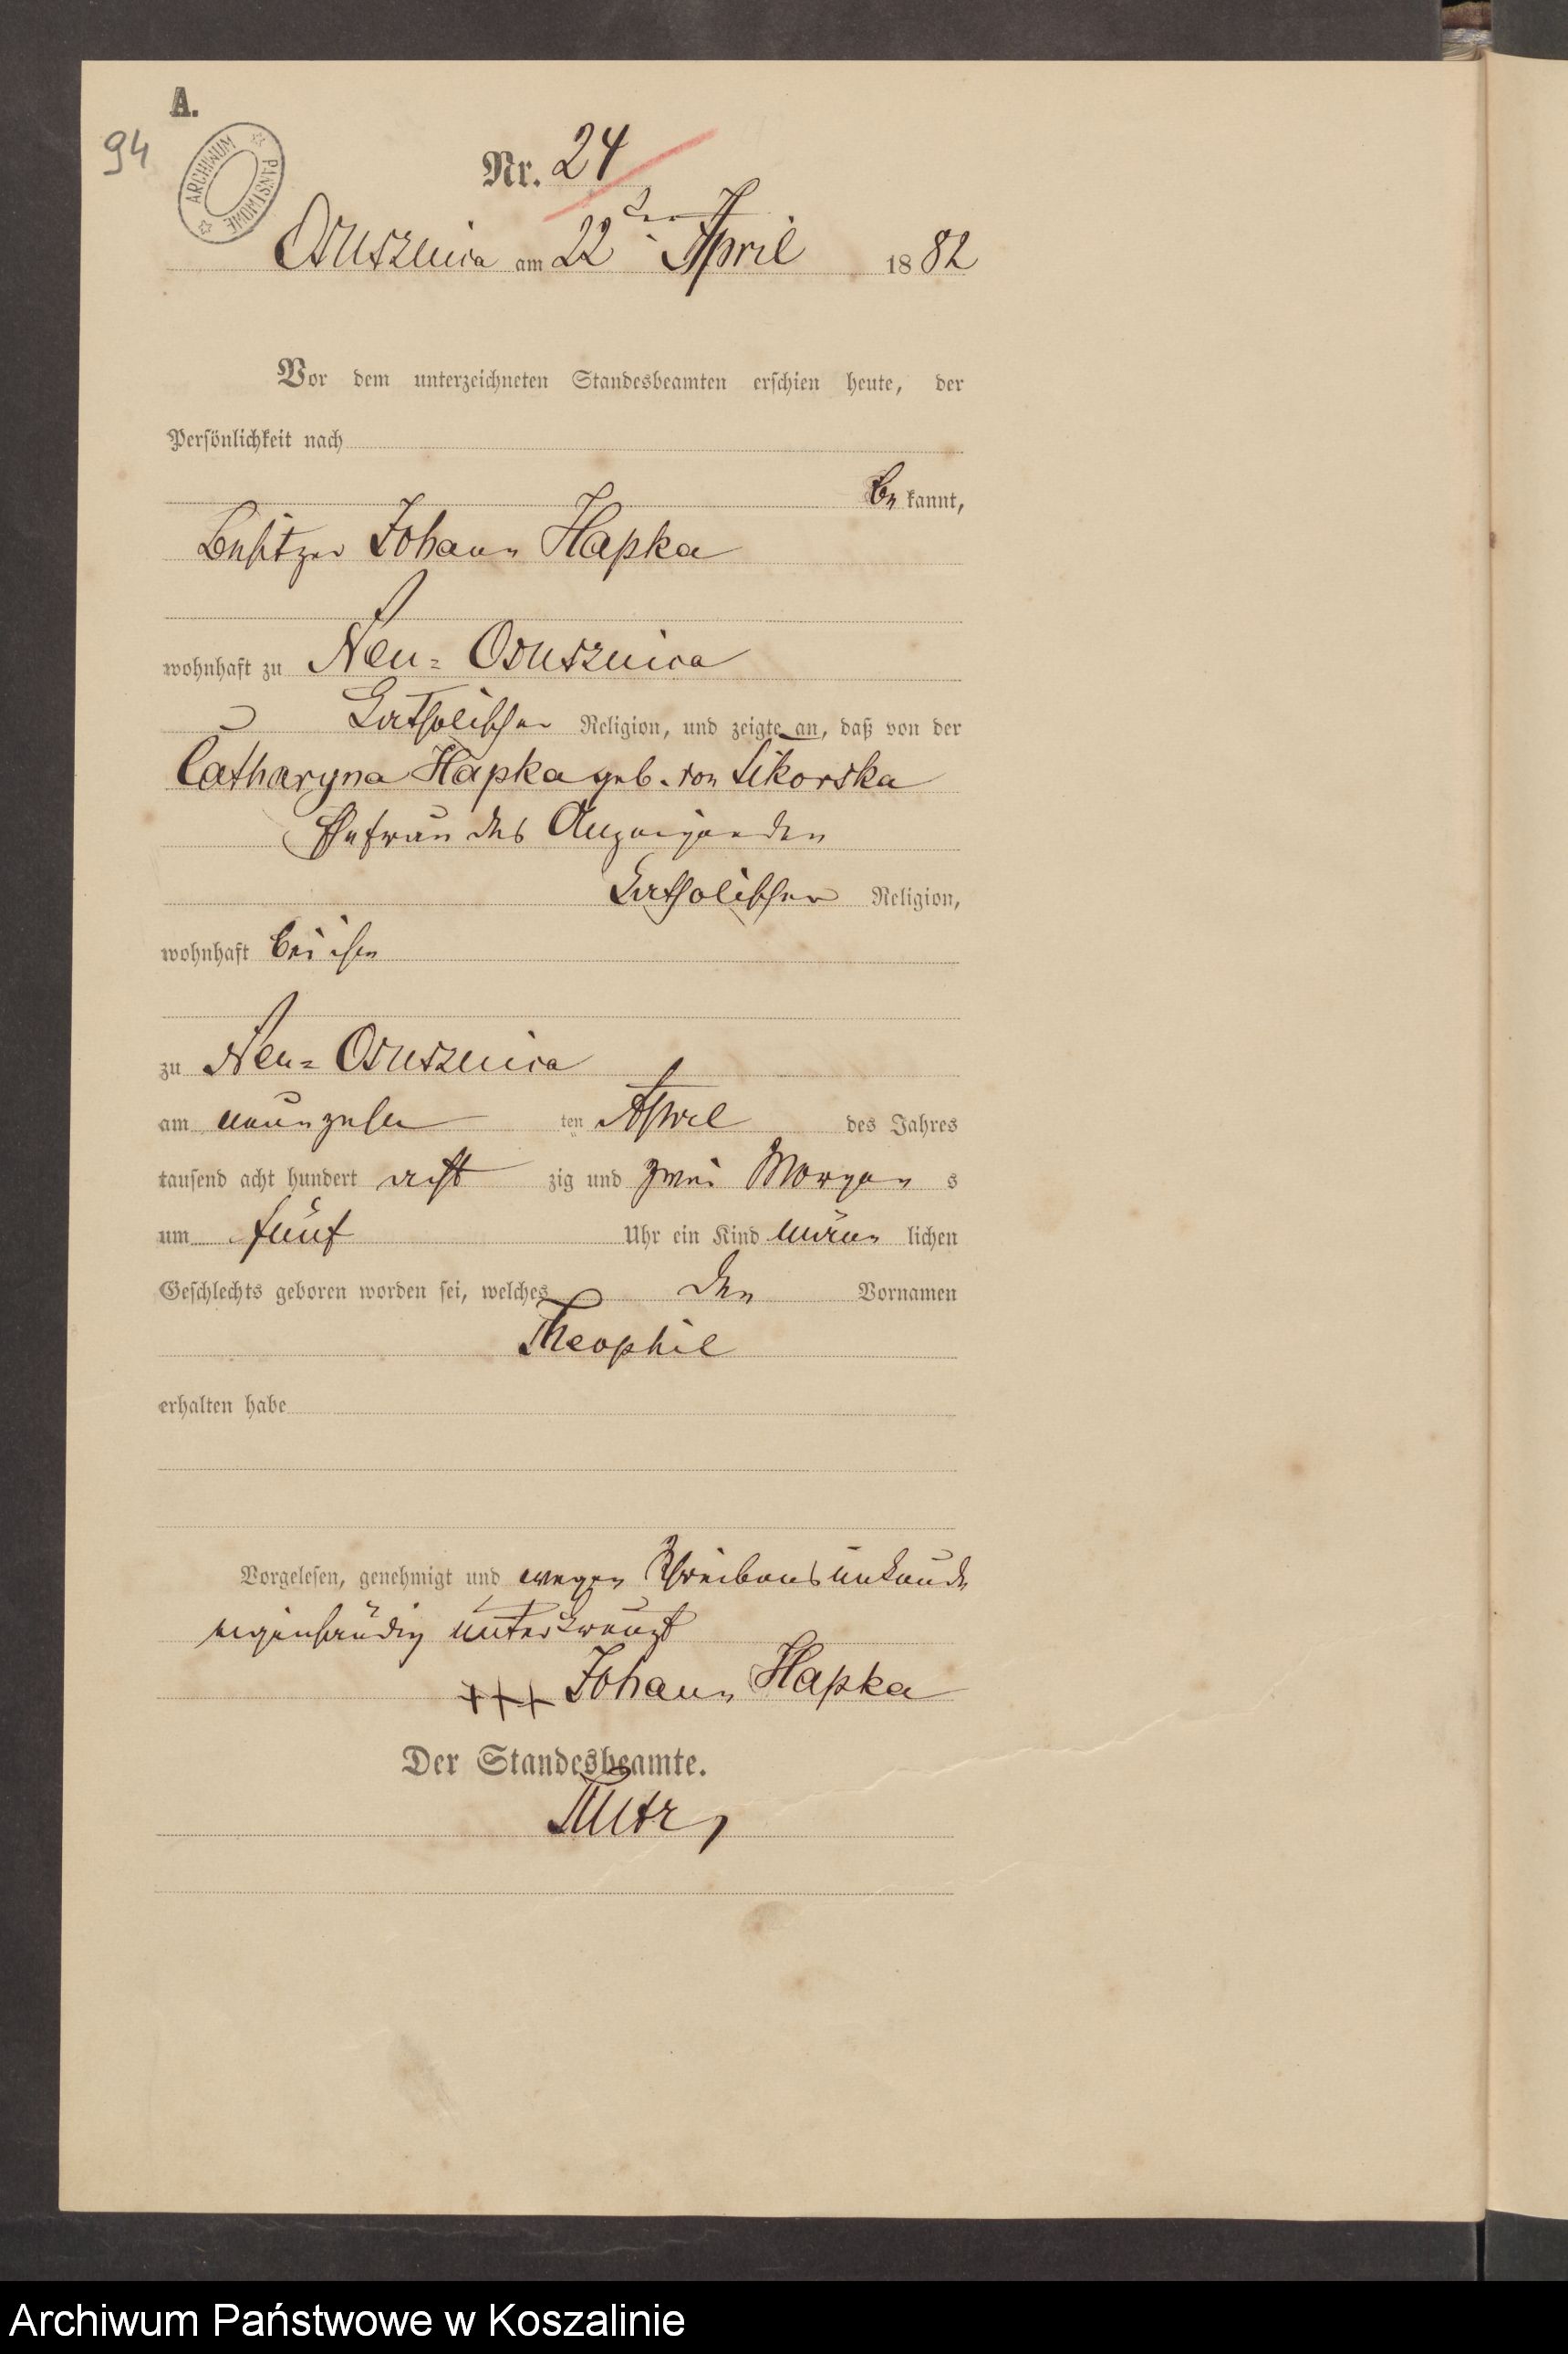 A.
94
ARCHIWUM PAŃSTWOWE
Nr. 24
Osusznica am 22ten April 1882
Vor dem unterzeichneten Standesbeamten erschien heute, der
Persönlichkeit nach
be kannt,
Besitzer Johann Hapka
wohnhaft zu Neu= Osusznica
katholischer Religion, und zeigte an, daß von der
Catharyna Hapka geb. von Sikorska
Ehefrau des Anzeigenden
katholischer Religion,
wohnhaft bei ihm
zu Neu= Osusznica
am neunzehn ten April des Jahres
tausend acht hundert acht zig und zwei Morgens
um fünf Uhr ein Kind männ lichen
Geschlechts geboren worden sei, welches den Vornamen
Theophil
erhalten habe
Vorgelesen, genehmigt und wegen Schreibensunkunde
eigenhändig unterkreuzt
+++ Johann Hapka
Der Standesbeamte.
Archiwum Państwowe w Koszalinie